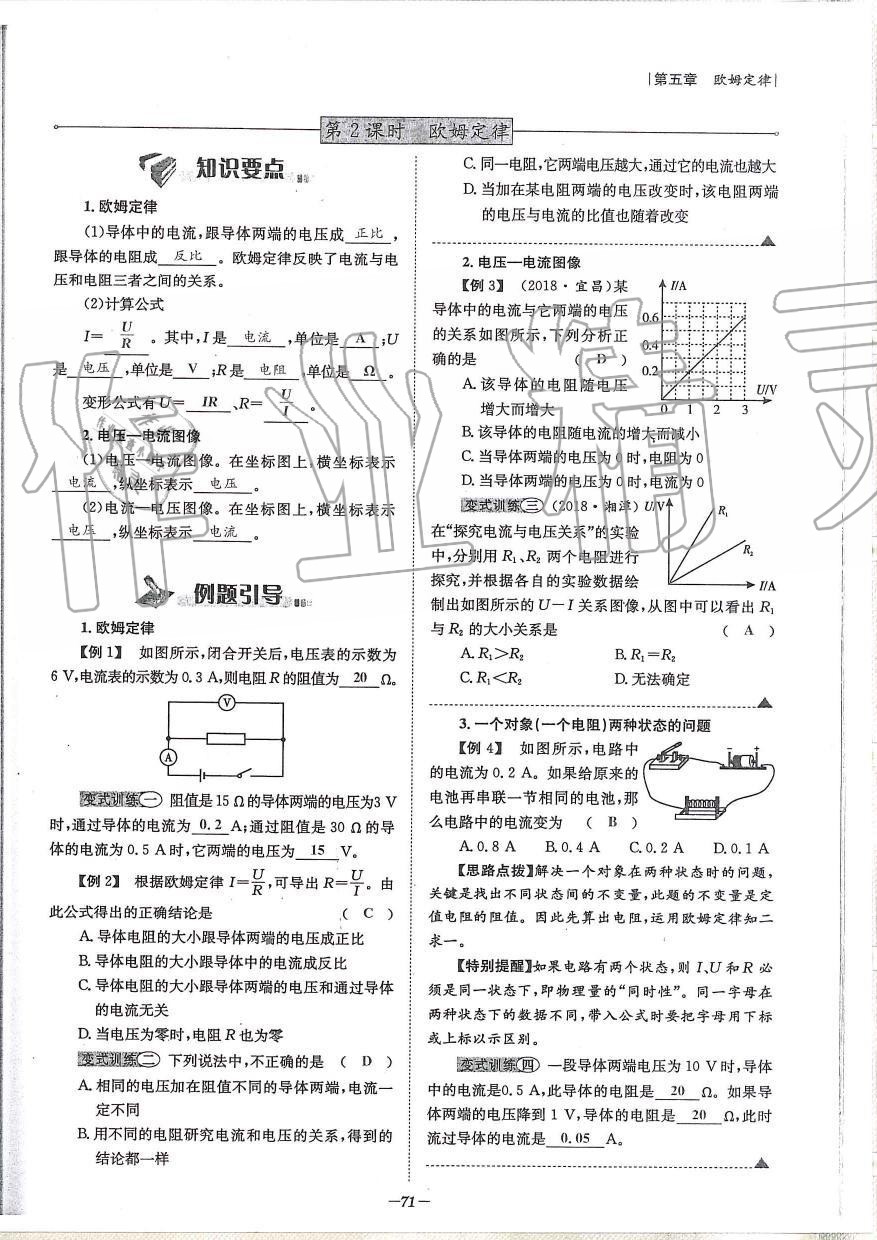 第五章 欧姆定律
第2课时 欧姆定律
知识要点
1.欧姆定律
(1)导体中的电流,跟导体两端的电压成 正比 ,
跟导体的电阻成 反比 。欧姆定律反映了电流与电
压和电阻三者之间的关系。
(2)计算公式
I= U/R 。其中,I是 电流 ,单位是 A ;U
是 电压 ,单位是 V ;R是 电阻 ,单位是 Ω 。
变形公式有U= IR 、R= U/I 。
2.电压—电流图像
(1)电压—电流图像。在坐标图上,横坐标表示
电流 ,纵坐标表示 电压 。
(2)电流—电压图像。在坐标图上,横坐标表示
电压 ,纵坐标表示 电流 。
例题引导
1.欧姆定律
【例1】 如图所示,闭合开关后,电压表的示数为
6 V,电流表的示数为0.3 A,则电阻R的阻值为 20 Ω。
V
A
变式训练一 阻值是15 Ω的导体两端的电压为3 V
时,通过导体的电流为 0.2 A;通过阻值是30 Ω的导
体的电流为0.5 A时,它两端的电压为 15 V。
【例2】 根据欧姆定律I=U/R,可导出R=U/I。由
此公式得出的正确结论是 ( C )
A.导体电阻的大小跟导体两端的电压成正比
B.导体电阻的大小跟导体中的电流成反比
C.导体电阻的大小跟导体两端的电压和通过导体
的电流无关
D.当电压为零时,电阻R也为零
变式训练二 下列说法中,不正确的是 ( D )
A.相同的电压加在阻值不同的导体两端,电流一
定不同
B.用不同的电阻研究电流和电压的关系,得到的
结论都一样
C.同一电阻,它两端电压越大,通过它的电流也越大
D.当加在某电阻两端的电压改变时,该电阻两端
的电压与电流的比值也随着改变
2.电压—电流图像
【例3】 (2018·宜昌)某
导体中的电流与它两端的电压
的关系如图所示,下列分析正
确的是 ( D )
A.该导体的电阻随电压
增大而增大
I/A
0.6
0.4
0.2
U/V
0 1 2 3
B.该导体的电阻随电流的增大而减小
C.当导体两端的电压为0时,电阻为0
D.当导体两端的电压为0时,电流为0
变式训练三 (2018·湘潭)
在“探究电流与电压关系”的实验
中,分别用R₁、R₂两个电阻进行
探究,并根据各自的实验数据绘
制出如图所示的U—I关系图像,从图中可以看出R₁
与R₂的大小关系是 ( A )
U/V
R₁
R₂
I/A
A.R₁>R₂ B.R₁=R₂
C.R₁<R₂ D.无法确定
3.一个对象(一个电阻)两种状态的问题
【例4】 如图所示,电路中
的电流为0.2 A。如果给原来的
电池再串联一节相同的电池,那
么电路中的电流变为 ( B )
A.0.8 A B.0.4 A C.0.2 A D.0.1 A
【思路点拨】解决一个对象在两种状态时的问题,
关键是找出不同状态间的不变量,此题的不变量是定
值电阻的阻值。因此先算出电阻,运用欧姆定律知二
求一。
【特别提醒】如果电路有两个状态,则I、U和R必
须是同一状态下,即物理量的“同时性”。同一字母在
两种状态下的数据不同,带入公式时要把字母用下标
或上标以示区别。
变式训练四 一段导体两端电压为10 V时,导体
中的电流是0.5 A,此导体的电阻是 20 Ω。如果导
体两端的电压降到1 V,导体的电阻是 20 Ω,此时
流过导体的电流是 0.05 A。
—71—
作业精灵